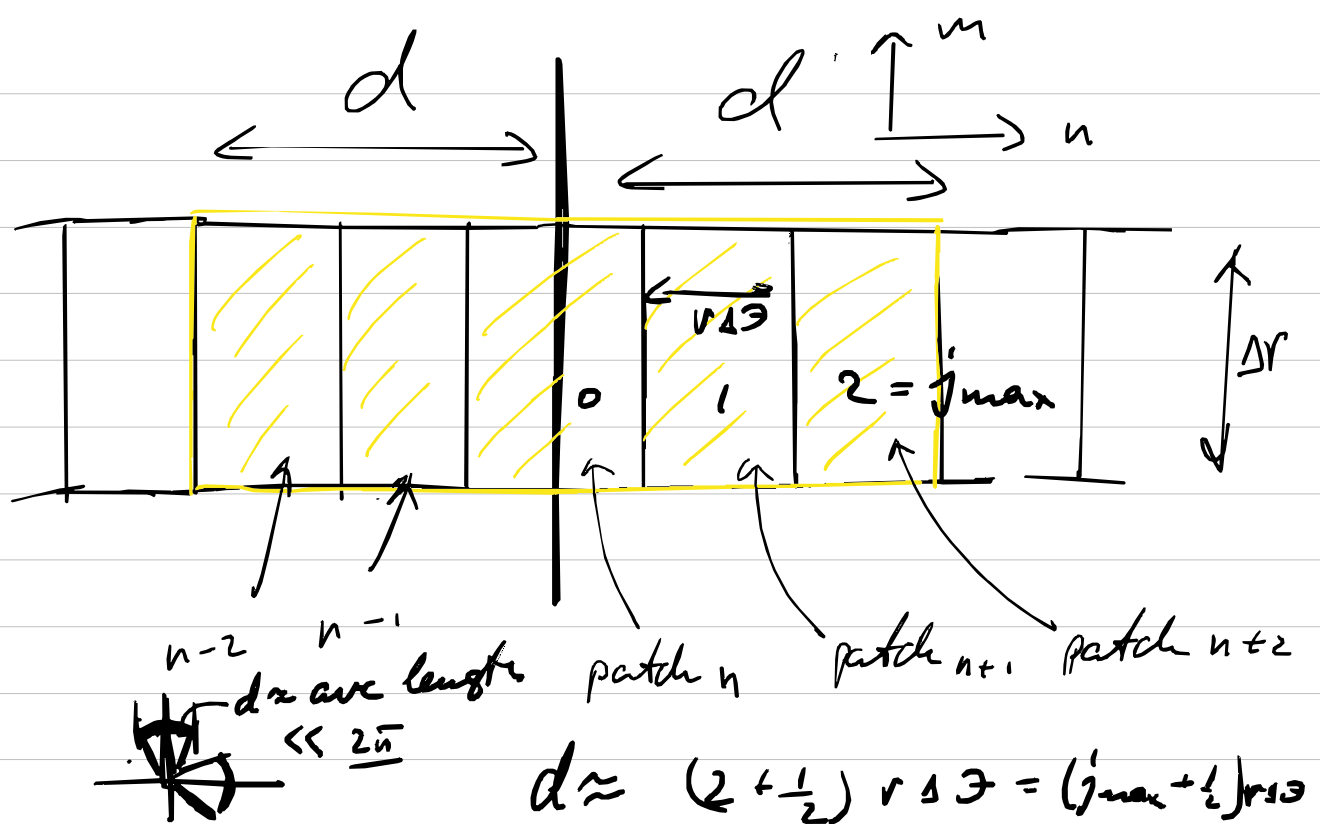 d
d
m
n
rΔϑ
Δr
0 1 2 = jmax
n-2 n-1
patch n
patch n+1
patch n+2
d ≈ arc length
<< 2π
d ≈ (2 + 1/2) r Δ ϑ = (jmax + 1/2) rΔϑ